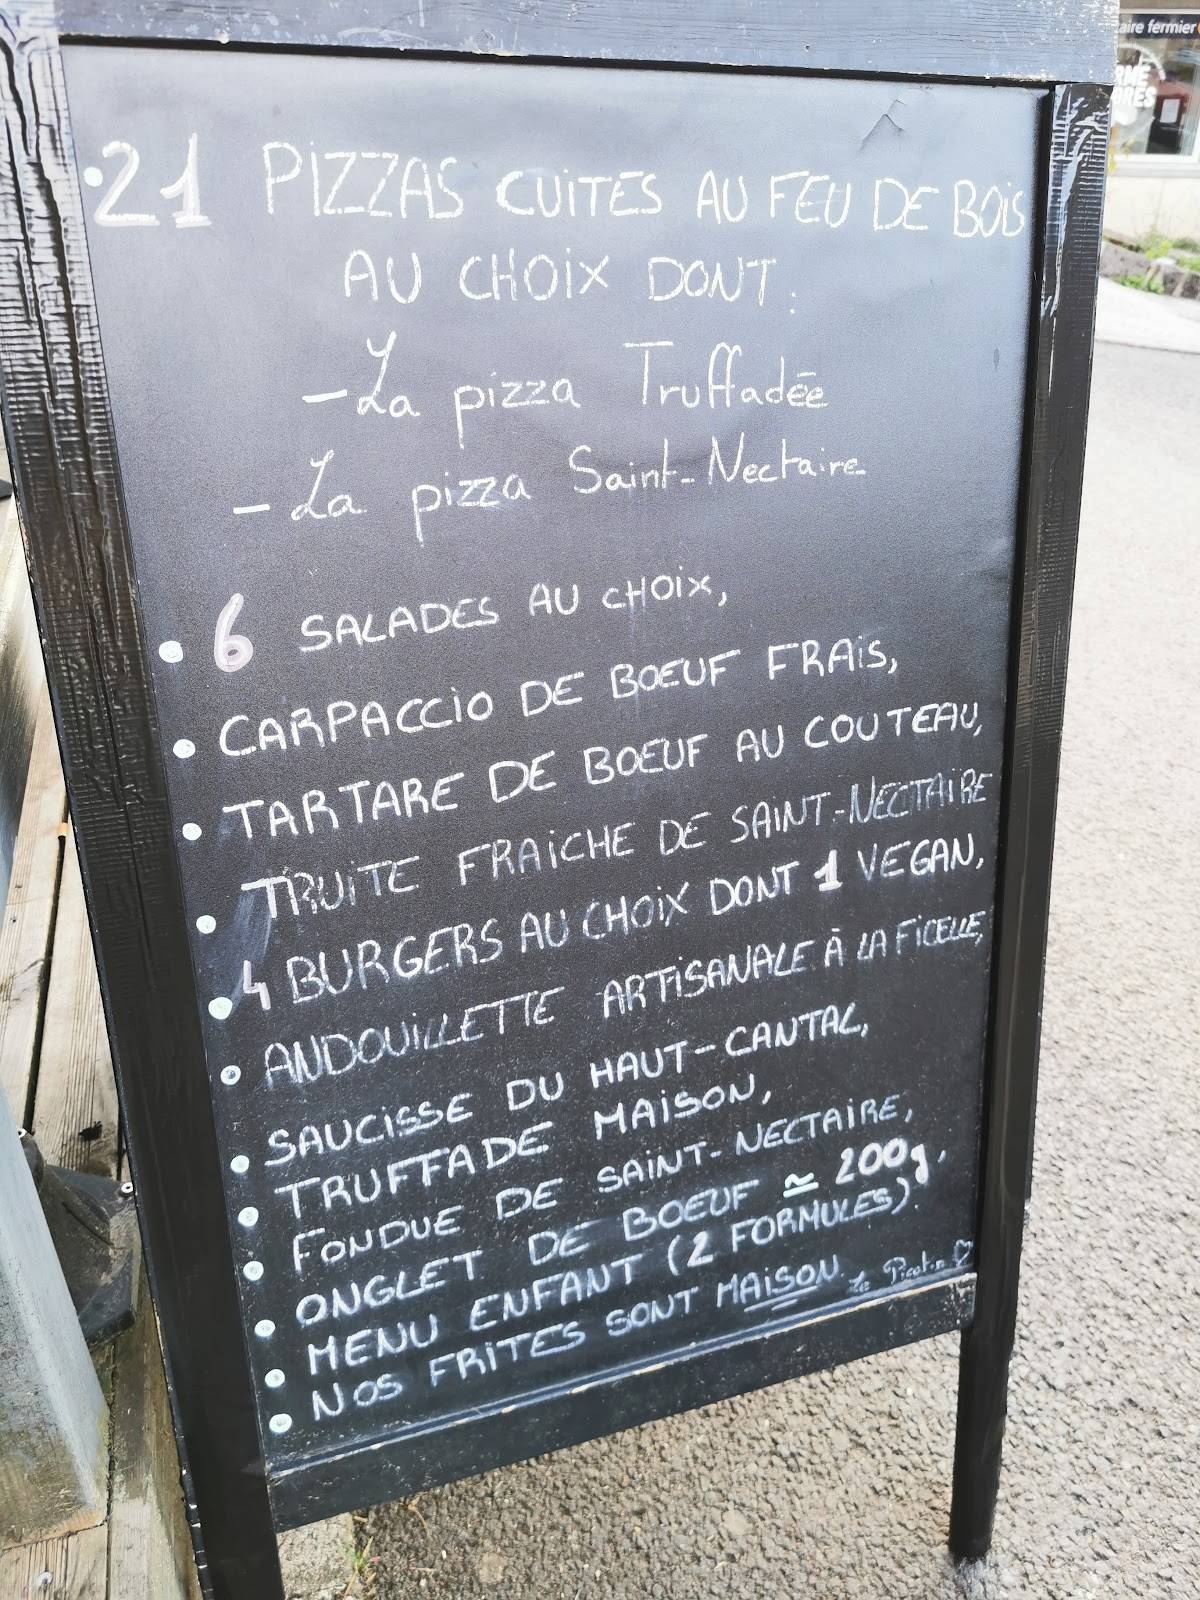 aire fermier
RMÉ
ORES
• 21 PIZZAS CUITES AU FEU DE BOIS
AU CHOIX DONT :
- La pizza Truffadée
- La pizza Saint-Nectaire
• 6 SALADES AU CHOIX,
• CARPACCIO DE BOEUF FRAIS,
• TARTARE DE BOEUF AU COUTEAU,
• TRUITE FRAICHE DE SAINT-NECTAIRE
• 4 BURGERS AU CHOIX DONT 1 VEGAN,
• ANDOUILLETTE ARTISANALE À LA FICELLE,
• SAUCISSE DU HAUT-CANTAL,
• TRUFFADE MAISON,
• FONDUE DE SAINT-NECTAIRE,
• ONGLET DE BOEUF ≃ 200g,
• MENU ENFANT (2 FORMULES).
• NOS FRITES SONT MAISON. Le Picotin ♡